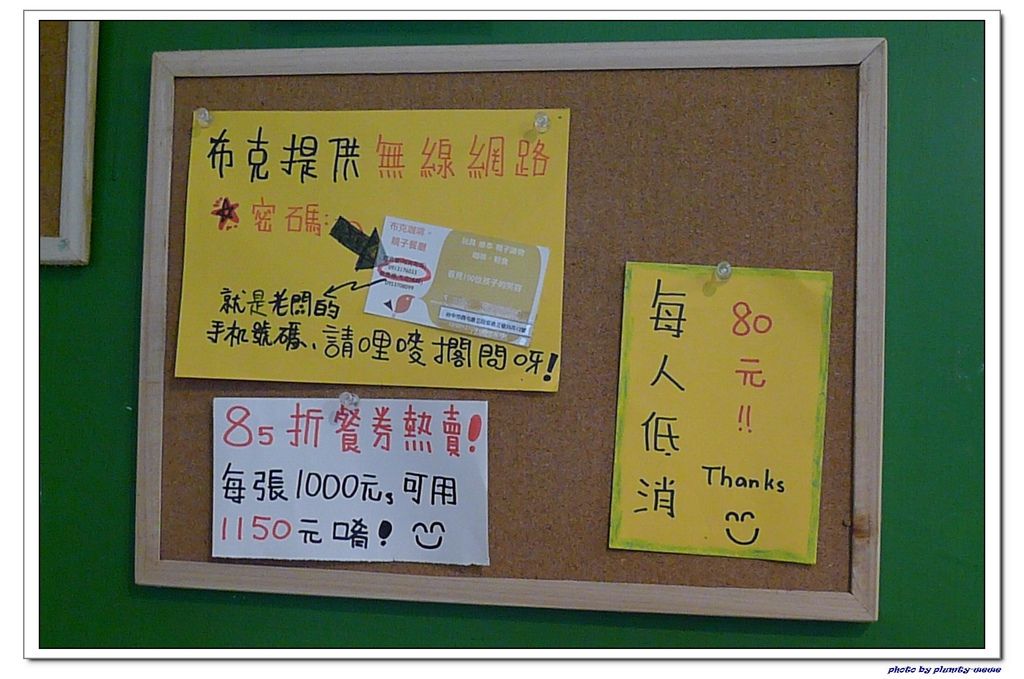 布克提供無線網路
密碼:
布克咖啡·
親子餐廳
就是老闆的
手机號碼、請哩唛擱問呀!
85折餐券熱賣!
每張1000元,可用
1150元唷!
每人低消
80元!!
Thanks
photo by plumty meme